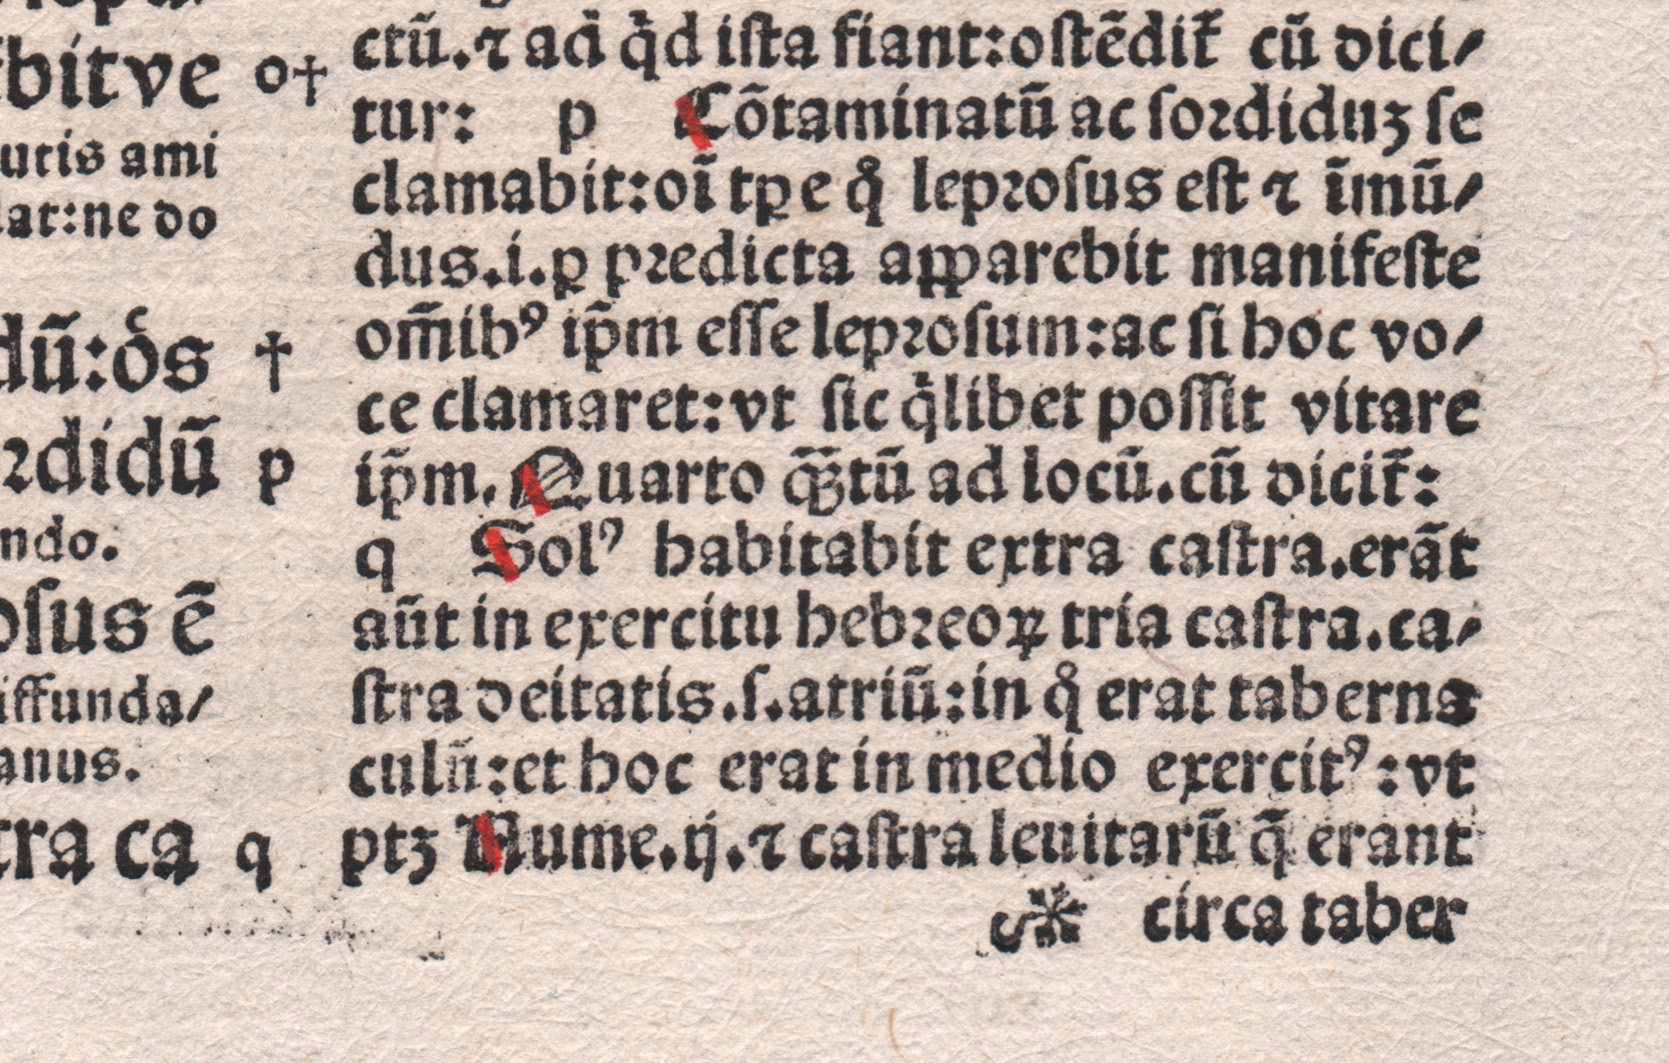 bitve o†
utis ami
lat:ne do
dũ:oẛ †
ꝛdidũ p
ndo.
oſus ẽ
iffunda/
anus.
tra ca q
ctũ.⁊ ad q̇d iſta fiant:oſtẽdit᷑ cũ dici/
tur: p Cõtaminatũ ac ſoꝛdiduʒ ſe
clamabit:oĩ tꝑe qͦ lepꝛoſus eſt ⁊ ĩmũ/
dus.i.ꝑ pꝛedicta apparebit manifeſte
om̃ibꝰ ip̃m eſſe lepꝛoſum:ac ſi hoc vo/
ce clamaret:vt ſic qͥlibet poſſit vitare
ip̃m. Quarto q̃ʒtũ ad locũ.cũ dicit᷑:
q Solꝰ habitabit extra caſtra.erãt
aũt in exercitu hebꝛeoꝝ tria caſtra.ca/
ſtra deitatis.ſ.atriũ:in qͦ erat taberna
culũ:et hoc erat in medio exercitꝰ:vt
ptʒ Nume.ij.⁊ caſtra leuitarũ q̃ erant
circa taber